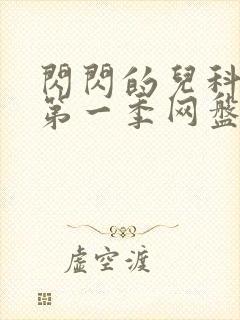 閃閃的兒科
第一季网盤
虛空渡